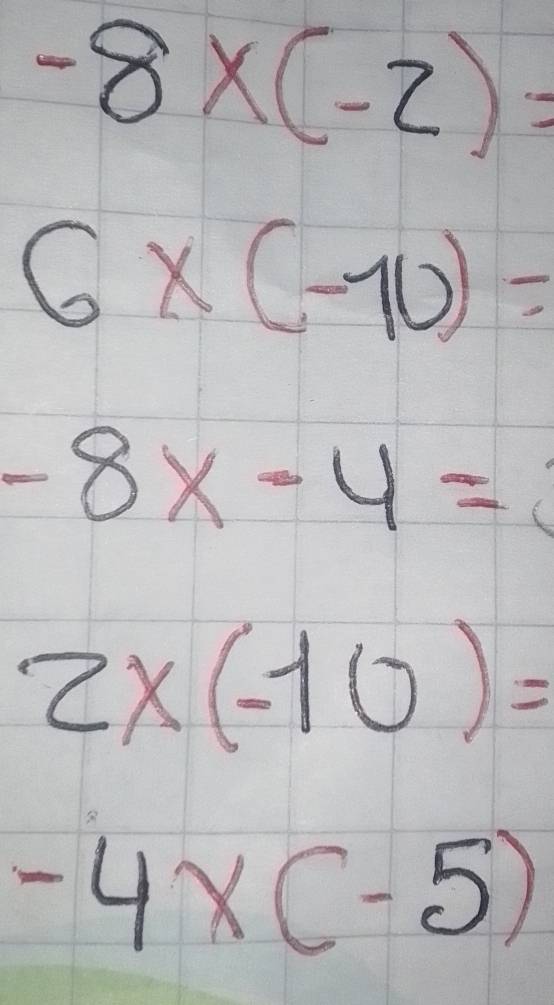 -8×(-2)=
6×(-10)=
-8×-4=
2×(-10)=
-4×(-5)